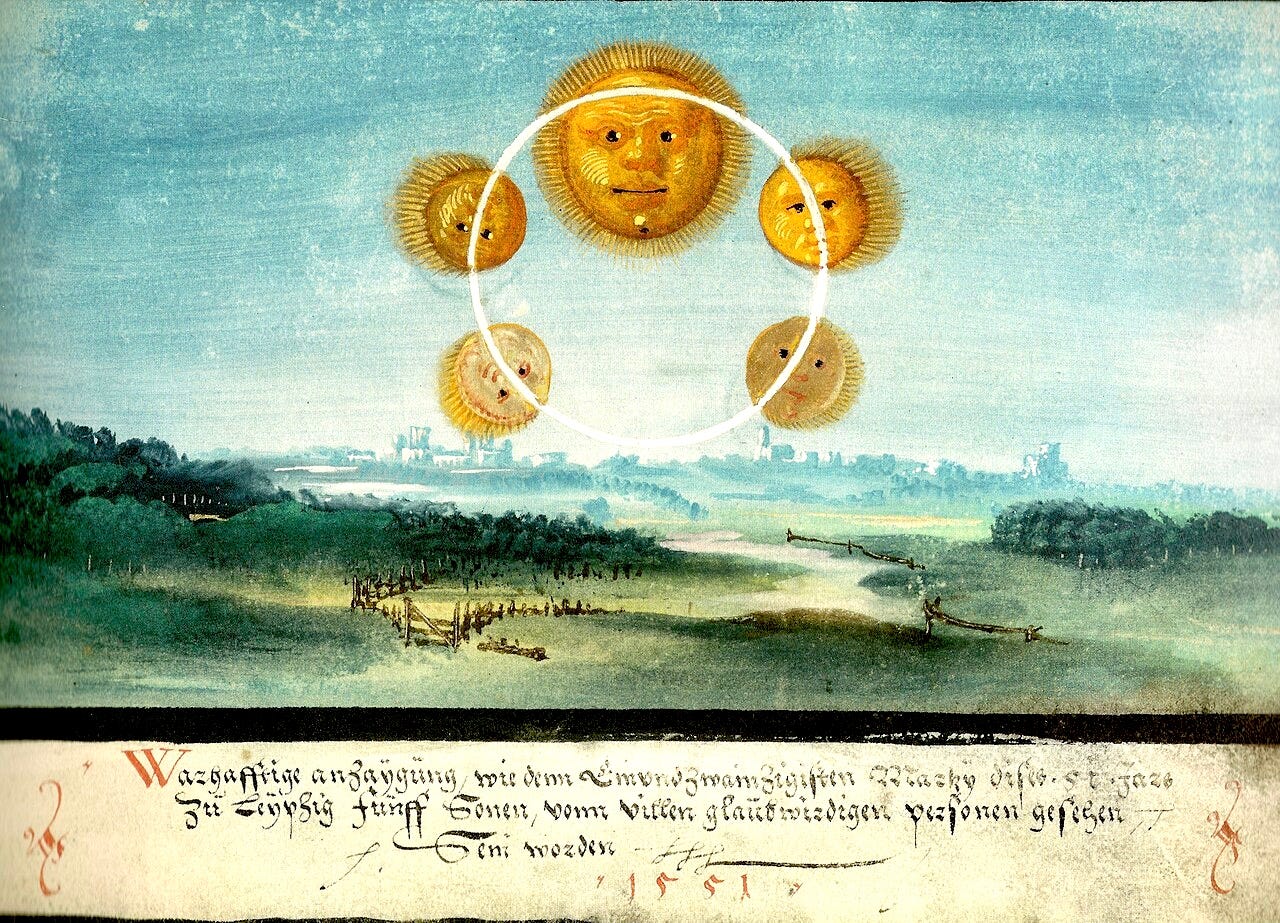 Warhafftige anzaygüng, wie denn Einvndzwainzigisten Martzy dises 51 Jars
Zü Leypzig fünff Sonen, vonn villen glaübwirdigen personen gesehen
Sein worden
1551